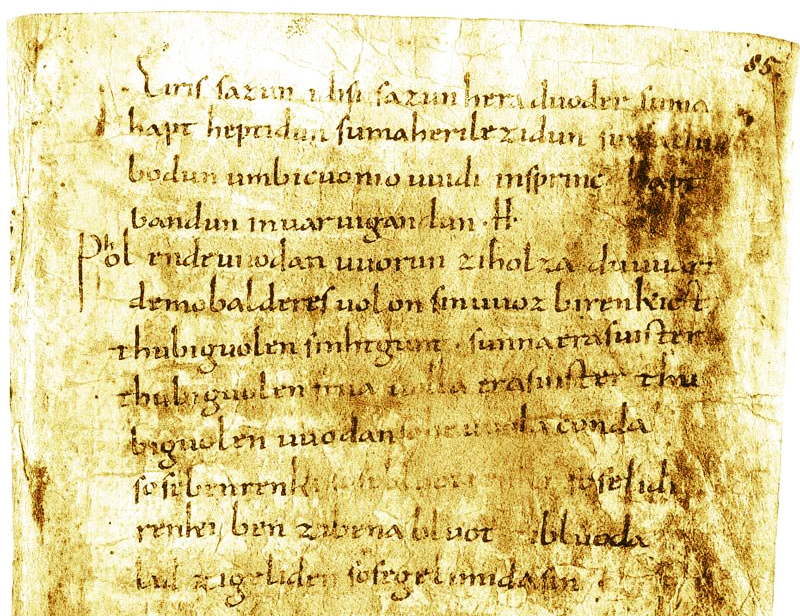 85.
Eiris sazun idisi sazun hera duoder suma
hapt heptidun sumaherilezidun sumaclu
bodun umbicuonio uuidi insprinc hapt
bandun inuar uigandun .H.
Phol endeuuodan uuorun ziholza du uuart
demobalderes uolon sinuuoz birenkict
thubiguolen sinhtgunt . sunnaerasuister
thubiguolen friia uolla erasuister thu
biguolen uuodan sohe uuolaconda
sosebenrenki sosebluotrenki soselidi
renki ben zibena bluot zibluoda
lid zigeliden sosegelimidasin